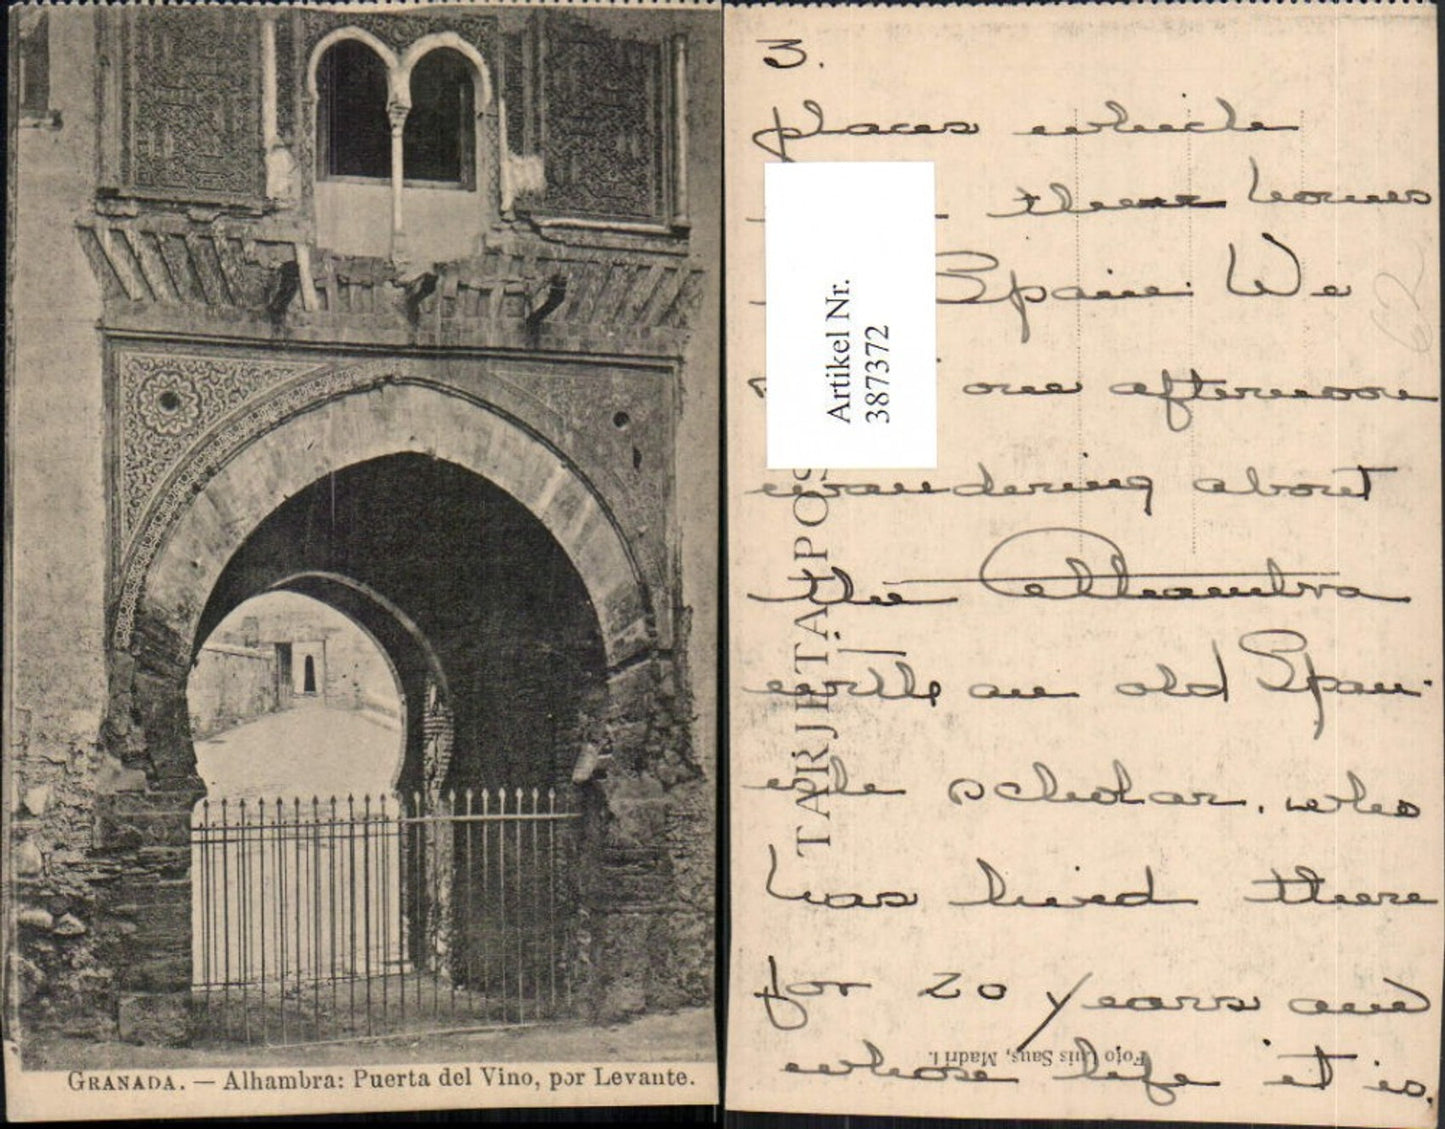 GRANADA. — Alhambra: Puerta del Vino, por Levante.
3.
places which
their homes
Spain. We
one afternoon
wandering about
the Alhambra
with an old Span-
ish scholar, who
has lived there
for 20 years and
whose life it is,
Artikel Nr.
387372
TARJETA POS
Foto Luis Saus, Madri
62